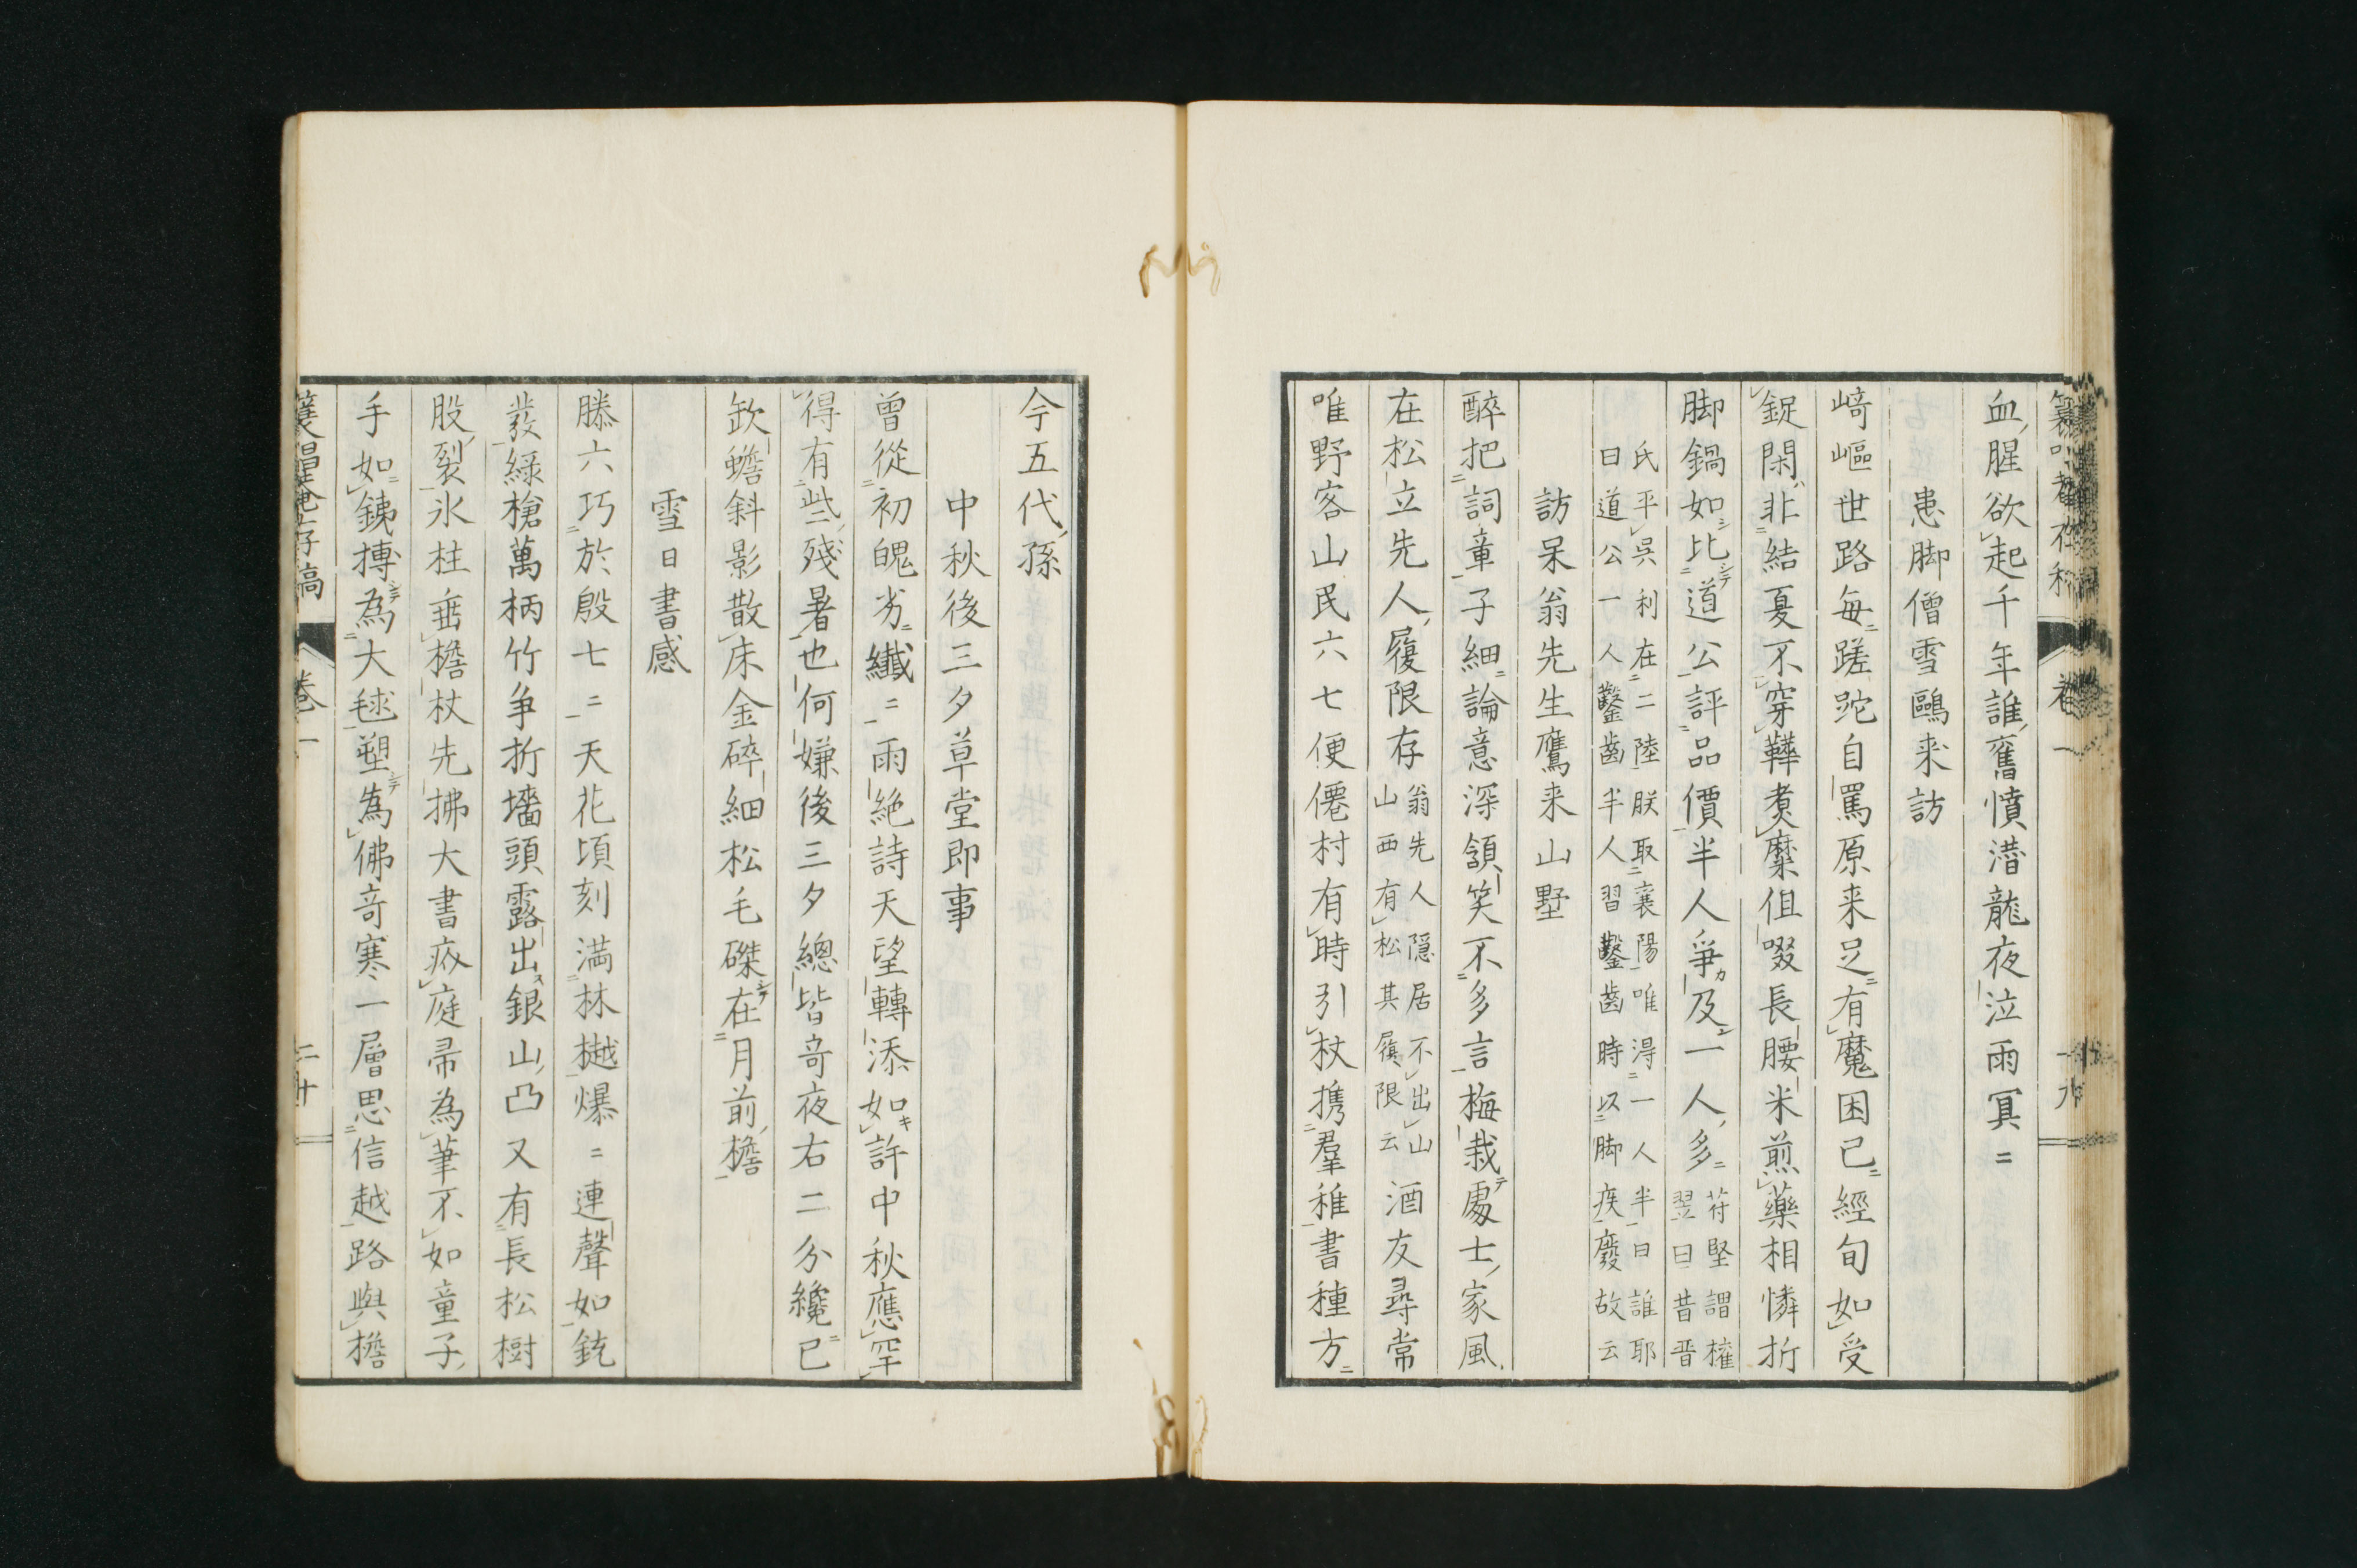 血腥欲起千年誰舊憤潜龍夜泣雨冥〻
患脚僧雪鷗来訪
﨑嶇世路毎蹉跎自罵原来足有魔困已經旬如受
錠閑非結夏不穿鞾煮糜伹啜長腰米煎藥相憐折
脚鍋如比道公評品價半人爭及一人多苻堅謂權翌曰昔晋
氏平呉利在二陸朕取襄陽唯得一人半曰誰耶
曰道公一人鑿齒半人習鑿齒時以脚疾廢故云
訪呆翁先生鷹来山墅
醉把詞章子細論意深頷笑不多言梅栽處士家風
在松立先人履限存翁先人隠居不出山山西有松其屐限云酒友尋常
唯野客山民六七便僊村有時引杖携羣稚書種方
今五代孫
中秋後三夕草堂即事
曾從初魄劣纖〻雨絶詩天望轉添如許中秋應罕
得有些殘暑也何嫌後三夕總皆竒夜右二分纔已
欽蟾斜影散床金碎細松毛磔在月前檐
雪日書感
滕六巧於殷七〻天花頃刻満林樾爆〻連聲如銃
發緑槍萬柄竹争折墻頭露出銀山凸又有長松樹
股裂氷柱垂檐杖先拂大書疢庭帚為筆不如童子
手如銕摶為大毬塑為佛竒寒一層思信越路與檐
蓑唱菴存稿 卷一 二十